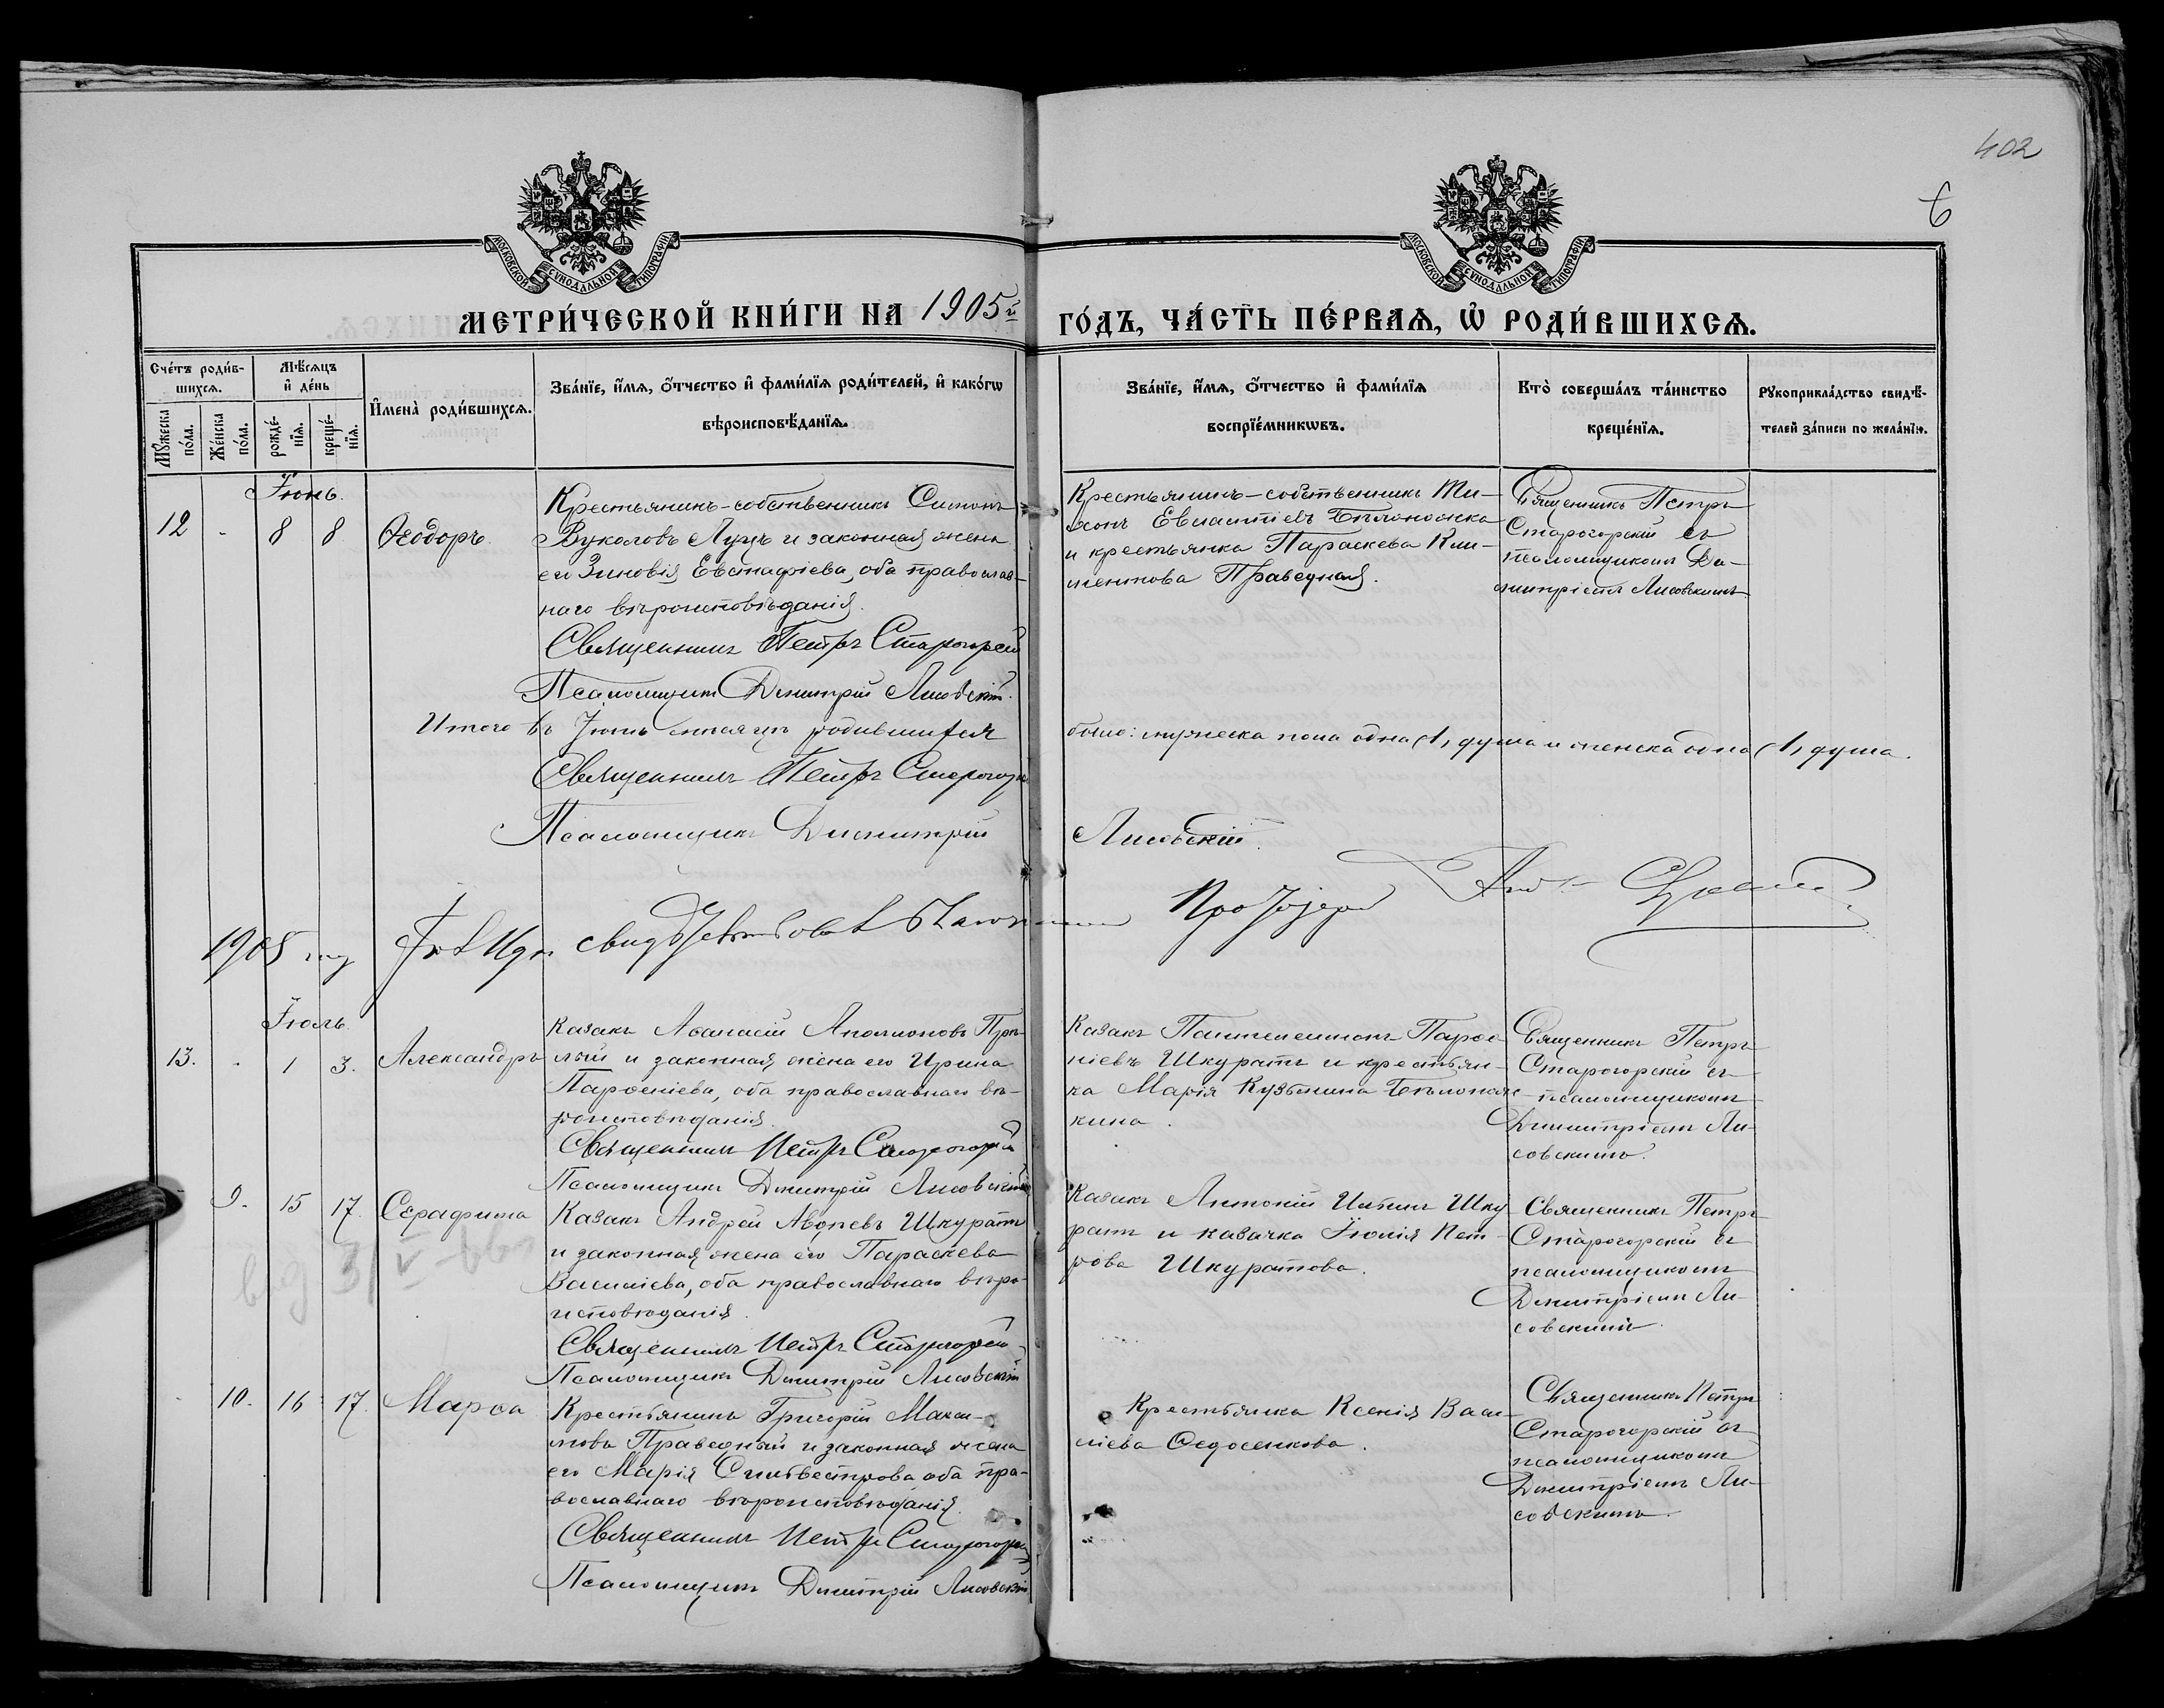 402
6
МОСКОВСКОЙ СѴНОДАЛЬНОЙ ТИПОГРАФІИ
МОСКОВСКОЙ СѴНОДАЛЬНОЙ ТИПОГРАФІИ
МЕТРИ́ЧЕСКОЙ КНИ́ГИ НА 1905й
ГО́ДЪ, ЧА́СТЬ ПЕ́РВАѦ, Ѡ РОДИ́ВШИХСѦ.
Сче́тъ роди́в-
шихсѧ.
Мѣ́сѧцъ
и де́нь
Мꙋжеска
по́ла.
Же́нска
по́ла.
рожде́-
нїѧ.
креще́-
нїѧ.
Имена̀ роди́вшихсѧ.
Зва́нїе, и́мѧ, о́тчество и фами́лїѧ роди́телей, и како́гѡ
вѣроисповѣ́данїѧ.
Зва́нїе, и́мѧ, о́тчество и фами́лїѧ
воспрїе́мникѡвъ.
Кто̀ соверша́лъ та́инство
креще́нїѧ.
Рꙋкоприкла́дство свидѣ́-
телей за́писи по жела́нїю.
Іюнь.
12 - 8 8 Ѳеодоръ
Крестьянинъ-собственникъ Симонъ
Вуколовъ Луцъ и законная жена
его Зиновія Евстафіева, оба православ-
наго вѣроисповѣданія.
Священникъ Петръ Старогорскій
Псаломщикъ Димитрій Лисовскій.
Крестьянинъ-собственникъ Ти-
хонъ Евлампіевъ Бѣлоножка
и крестьянка Параскева Кли-
ментова Праведная.
Священникъ Петръ
Старогорскій съ
псаломщикомъ Ди-
митріемъ Лисовскимъ
Итого въ Іюнѣ мѣсяцѣ родившихся
было: мужеска пола одна (1) душа и женска одна (1) душа.
Священникъ Петръ Старогорскій
Псаломщикъ Димитрій
Лисовскій.
1905 году
свидѣтельствовалъ
Протоіерей
Іюль.
13. - 1 3. Александръ
Казакъ Аѳанасій
лый и законная жена его Ирина
Парѳеніева, оба православнаго вѣ-
роисповѣданія.
Священникъ Петръ Старогорскій
Псаломщикъ Димитрій Лисовскій
Казакъ Пантелеимонъ Парѳе-
ніевъ Шкуратъ и крестьян-
ка Марія Кузьмина Бѣлонож-
кина.
Священникъ Петръ
Старогорскій съ
псаломщикомъ
Димитріемъ Ли-
совскимъ.
- 9. 15 17. Серафима
Казакъ Андрей Авдіевъ Шкуратъ
и законная жена его Параскева
Василіева, оба православнаго вѣро-
исповѣданія.
Священникъ Петръ Старогорскій
Псаломщикъ Димитрій Лисовскій
Казакъ Антоній Ильинъ Шку-
ратъ и казачка Іюлія Пет-
рова Шкуратова.
Священникъ Петръ
Старогорскій съ
псаломщикомъ
Димитріемъ Ли-
совскимъ.
- 10. 16 17. Марѳа
Крестьянинъ Григорій Макси-
мовъ Праведный и законная жена
его Марія Сильвестрова, оба пра-
вославнаго вѣроисповѣданія.
Священникъ Петръ Старогорскій
Псаломщикъ Димитрій Лисовскій
Крестьянка Ксенія Васи-
ліева Ѳедосенкова.
Священникъ Петръ
Старогорскій съ
псаломщикомъ
Димитріемъ Ли-
совскимъ.